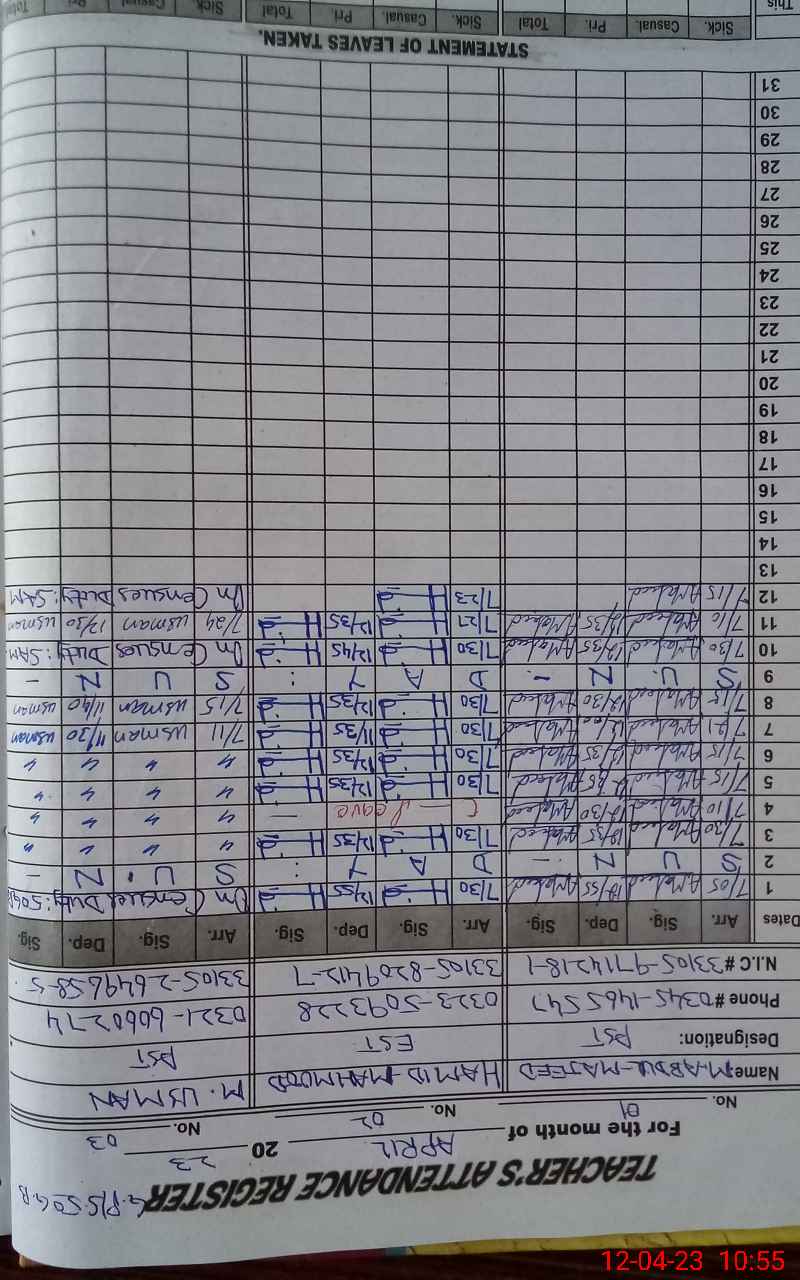 G.P/S 506GB
TEACHER'S ATTENDANCE REGISTER
For the month of APRIL 20 23
No. 01 No. 02 No. 03
Name: M. ABDUL MAJEED HAMID MAHMOOD M. USMAN
Designation: PST EST PST
Phone # 0345-1465547 0323-5093228 0321-6060274
N.I.C # 33105-9714218-1 33105-8209412-7 33105-2649658-5
Dates Arr. Sig. Dep. Sig. Arr. Sig. Dep. Sig. Arr. Sig. Dep. Sig.
1 7/05 AMajeed 12/55 AMajeed 7/30 12/55 On Censues Duty: 506GB
2 S U N - D A Y : S U N -
3 7/30 AMajeed 12/35 AMajeed 7/30 12/35 " " " "
4 7/10 AMajeed 12/30 AMajeed Leave " " " "
5 7/15 AMajeed AMajeed 7/30 12/35 " " " "
6 7/15 AMajeed 12/35 AMajeed 7/30 12/35 " " " "
7 7/21 AMajeed AMajeed 7/30 11/35 7/11 usman 11/30 usman
8 7/15 AMajeed 12/30 AMajeed 7/30 12/35 7/15 usman 11/40 usman
9 S U N - D A Y : S U N -
10 7/30 AMajeed 12/35 AMajeed 7/30 12/45 On Censues Duty: SAM
11 7/10 AMajeed 12/35 AMajeed 7/27 12/35 7/24 usman 12/30 usman
12 7/15 AMajeed 7/23 On Censues Duty: SAM
13
14
15
16
17
18
19
20
21
22
23
24
25
26
27
28
29
30
31
STATEMENT OF LEAVES TAKEN.
Sick. Casual. Pri. Total Sick. Casual. Pri. Total Sick. Casual Pri. Total
This
12-04-23 10:55